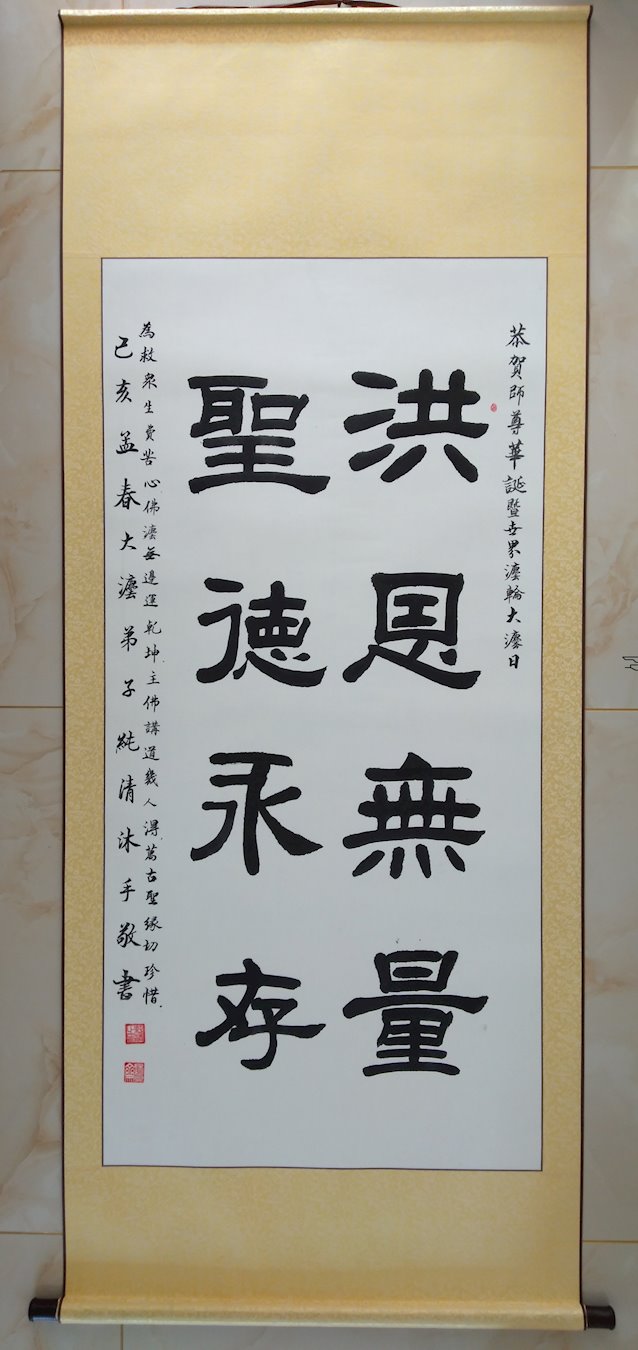 恭賀師尊華誕暨世界灋輪大灋日
洪恩無量
聖德永存
為救衆生費苦心佛灋無邊運乾坤主佛講道幾人得萬古聖緣切珍惜
己亥孟春大灋弟子純清沐手敬書